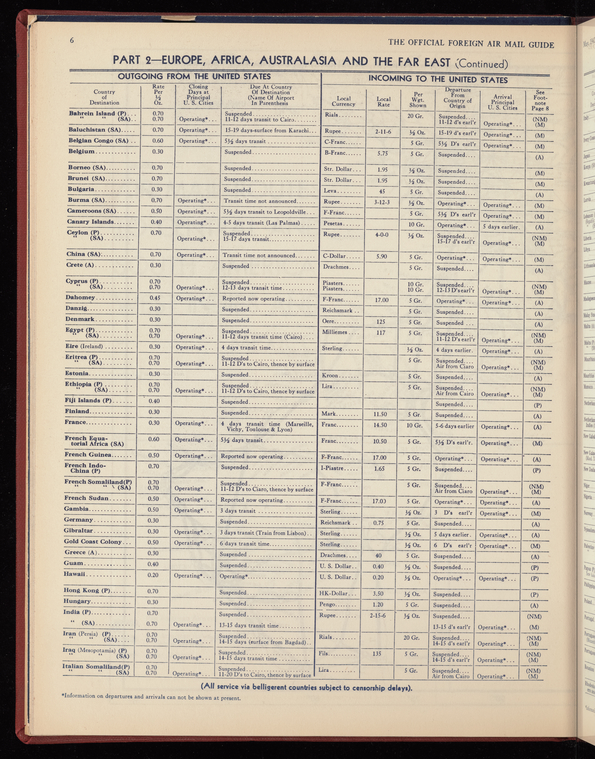 6
THE OFFICIAL FOREIGN AIR MAIL GUIDE
PART 2—EUROPE, AFRICA, AUSTRALASIA AND THE FAR EAST (Continued)
OUTGOING FROM THE UNITED STATES INCOMING TO THE UNITED STATES
Country of Destination Rate Per ½ Oz. Closing Days at Principal U. S. Cities Due At Country Of Destination (Name Of Airport In Parenthesis Local Currency Local Rate Per Wgt. Shown Departure From Country of Origin Arrival Principal U. S. Cities See Footnote Page 8
Bahrein Island (P) 0.70 Suspended Rials 20 Gr. Suspended (NM)
" (SA) 0.70 Operating* 11-12 days transit to Cairo 11-12 d's earl'r Operating* (M)
Baluchistan (SA) 0.70 Operating* 15-19 days-surface from Karachi Rupee 2-11-6 ½ Oz. 15-19 d's earl'r Operating* (M)
Belgian Congo (SA) 0.60 Operating* 5½ days transit C-Franc 5 Gr. 5½ D's earl'r Operating* (M)
Belgium 0.30 Suspended B-Franc 5.75 5 Gr. Suspended (A)
Borneo (SA) 0.70 Suspended Str. Dollar 1.95 ½ Oz. Suspended (M)
Brunei (SA) 0.70 Suspended Str. Dollar 1.95 ½ Oz. Suspended (M)
Bulgaria 0.30 Suspended Leva 45 5 Gr. Suspended (A)
Burma (SA) 0.70 Operating* Transit time not announced Rupee 3-12-3 ½ Oz. Operating* Operating* (M)
Cameroons (SA) 0.50 Operating* 5½ days transit to Leopoldville F-Franc 5 Gr. 5½ D's earl'r Operating* (M)
Canary Islands 0.40 Operating* 4-5 days transit (Las Palmas) Pesetas 10 Gr. Operating* 5 days earlier (A)
Ceylon (P) 0.70 Suspended Rupee 4-0-0 ½ Oz. Suspended (NM)
" (SA) Operating* 15-17 days transit 15-17 d's earl'r Operating* (M)
China (SA) 0.70 Operating* Transit time not announced C-Dollar 5.90 5 Gr. Operating* Operating* (M)
Crete (A) 0.30 Suspended Drachmes 5 Gr. Suspended (A)
Cyprus (P) 0.70 Suspended Piasters 10 Gr. Suspended (NM)
" (SA) 0.70 Operating* 12-13 days transit Piasters 10 Gr. 12-13 D's earl'r Operating* (M)
Dahomey 0.45 Operating* Reported now operating F-Franc 17.00 5 Gr. Operating* Operating* (A)
Danzig 0.30 Suspended Reichsmark 5 Gr. Suspended (A)
Denmark 0.30 Suspended Oere 125 5 Gr. Suspended (A)
Egypt (P) 0.70 Suspended Milliemes 117 5 Gr. Suspended (NM)
" (SA) 0.70 Operating* 11-12 days transit time (Cairo) 11-12 D's earl'r Operating* (M)
Eire (Ireland) 0.30 Operating* 4 days transit time Sterling ½ Oz. 4 days earlier Operating* (A)
Eritrea (P) 0.70 Suspended 5 Gr. Suspended (NM)
" (SA) 0.70 Operating* 11-12 D's to Cairo, thence by surface Air from Ciaro Operating* (M)
Estonia 0.30 Suspended Kroon 5 Gr. Suspended (A)
Ethiopia (P) 0.70 Suspended Lira 5 Gr. Suspended (NM)
" (SA) 0.70 Operating* 11-12 D's to Cairo, thence by surface Air from Cairo Operating* (M)
Fiji Islands (P) 0.40 Suspended Suspended (P)
Finland 0.30 Suspended Mark 11.50 5 Gr. Suspended (A)
France 0.30 Operating* 4 days transit time (Marseille, Vichy, Toulouse & Lyon) Franc 14.50 10 Gr. 5-6 days earlier Operating* (A)
French Equatorial Africa (SA) 0.60 Operating* 5½ days transit Franc 10.50 5 Gr. 5½ D's earl'r Operating* (M)
French Guinea 0.50 Operating* Reported now operating F-Franc 17.00 5 Gr. Operating* Operating* (A)
French Indo-China (P) 0.70 Suspended I-Piastre 1.65 5 Gr. Suspended (P)
French Somaliland(P) 0.70 Suspended F-Franc 5 Gr. Suspended (NM)
" " (SA) 0.70 Operating* 11-12 D's to Cairo, thence by surface Air from Ciaro Operating* (M)
French Sudan 0.50 Operating* Reported now operating F-Franc 17.03 5 Gr. Operating* Operating* (A)
Gambia 0.50 Operating* 3 days transit Sterling ½ Oz. 3 D's earl'r Operating* (M)
Germany 0.30 Suspended Reichsmark 0.75 5 Gr. Suspended (A)
Gibraltar 0.30 Operating* 3 days transit (Train from Lisbon) Sterling ½ Oz. 5 days earlier Operating* (A)
Gold Coast Colony 0.50 Operating* 6 days transit time Sterling ½ Oz. 6 D's earl'r Operating* (M)
Greece (A) 0.30 Suspended Drachmes 40 5 Gr. Suspended (A)
Guam 0.40 Suspended U. S. Dollar 0.40 ½ Oz. Suspended (P)
Hawaii 0.20 Operating* Operating* U. S. Dollar 0.20 ½ Oz. Operating* Operating* (P)
Hong Kong (P) 0.70 Suspended HK-Dollar 3.50 ½ Oz. Suspended (P)
Hungary 0.30 Suspended Pengo 1.20 5 Gr. Suspended (A)
India (P) 0.70 Suspended Rupee 2-15-6 ½ Oz. Suspended (NM)
" (SA) 0.70 Operating* 13-15 days transit time 13-15 d's earl'r Operating* (M)
Iran (Persia) (P) 0.70 Suspended Rials 20 Gr. Suspended (NM)
" " (SA) 0.70 Operating* 14-15 days (surface from Bagdad) 14-15 d's earl'r Operating* (M)
Iraq (Mesopotamia) (P) 0.70 Suspended Fils 135 5 Gr. Suspended (NM)
" (SA) 0.70 Operating* 14-15 days transit time 14-15 d's earl'r Operating* (M)
Italian Somaliland(P) 0.70 Suspended Lira 5 Gr. Suspended (NM)
" (SA) 0.70 Operating* 11-20 D's to Cairo, thence by surface Air from Cairo Operating* (M)
(All service via belligerent countries subject to censorship delays).
*Information on departures and arrivals can not be shown at present.